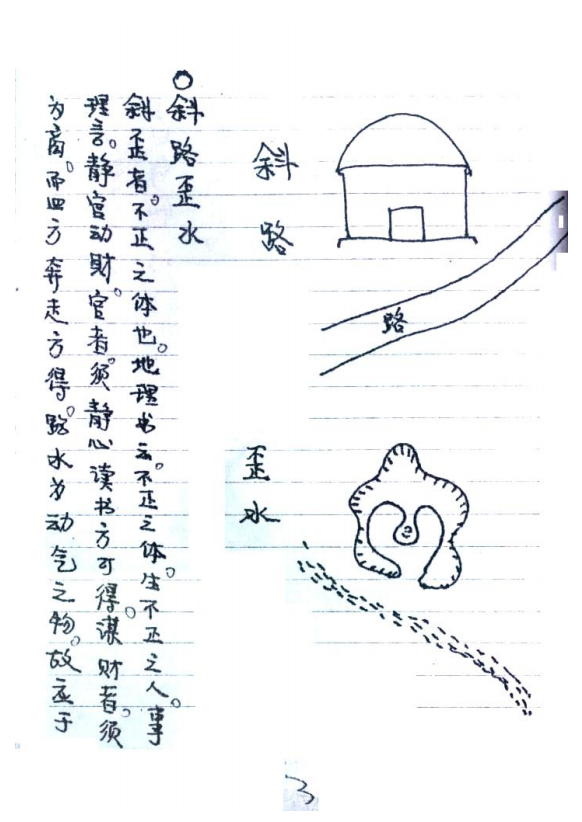 斜路
路
歪水
○斜路歪水
斜歪者。不正之体也。地理书云。不正之体。生不正之人。事
理言。静官动财。官者。须静心读书方可得。谋财者。须
为商。而四方奔走方得。路水为动气之物。故应于
3